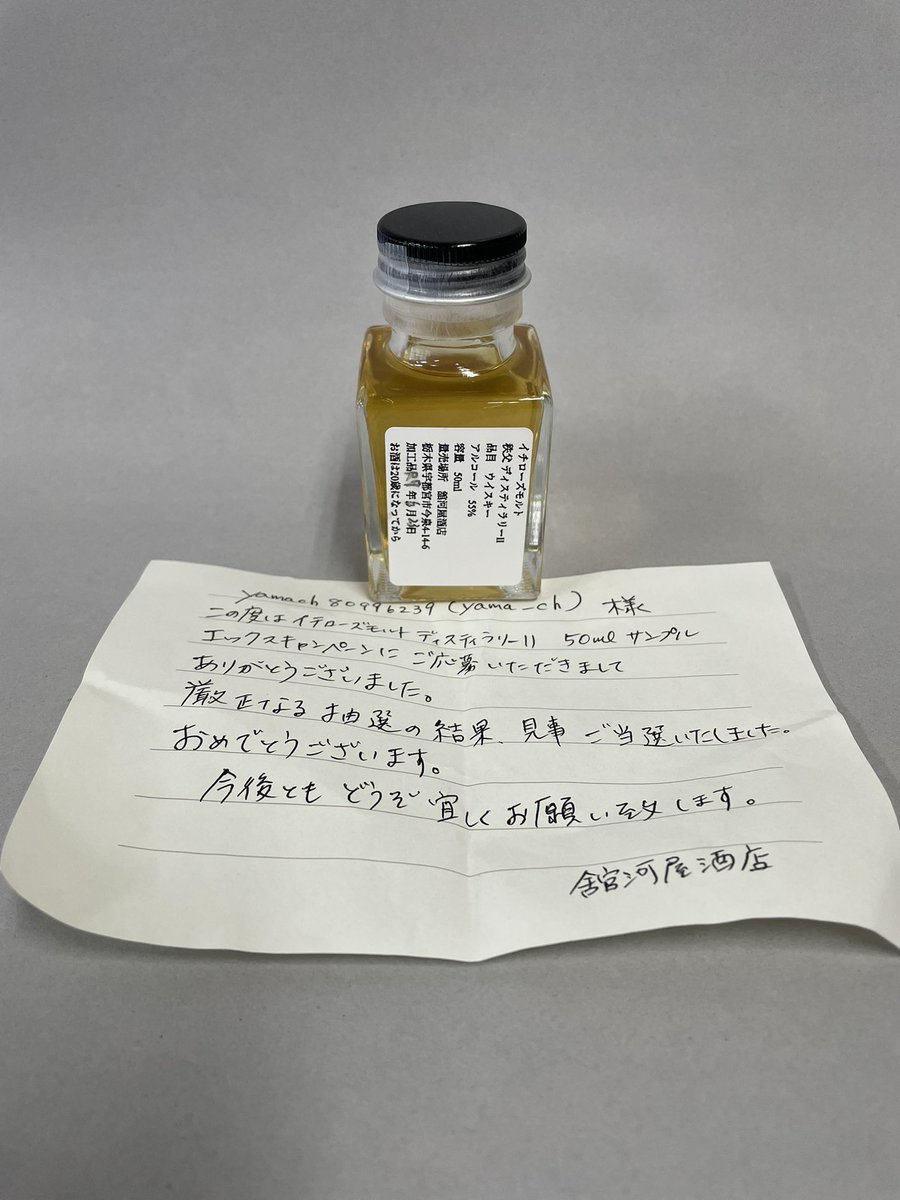 イチローズモルト
秩父 ディスティラリーII
品目　ウイスキー
アルコール　55%
容量　50ml
量売場所　舘河屋酒店
栃木県宇都宮市今泉4-14-6
加工品 年6月 日
お酒は20歳になってから
yamach80996239 (yama_ch) 様
この度は イチローズモルト ディスティラリーII 50ml サンプル
エックスキャンペーンに ご応募いただきまして
ありがとうございました。
厳正なる抽選の結果、見事 ご当選いたしました。
おめでとうございます。
今後とも どうぞ 宜しくお願い致します。
舘河屋酒店